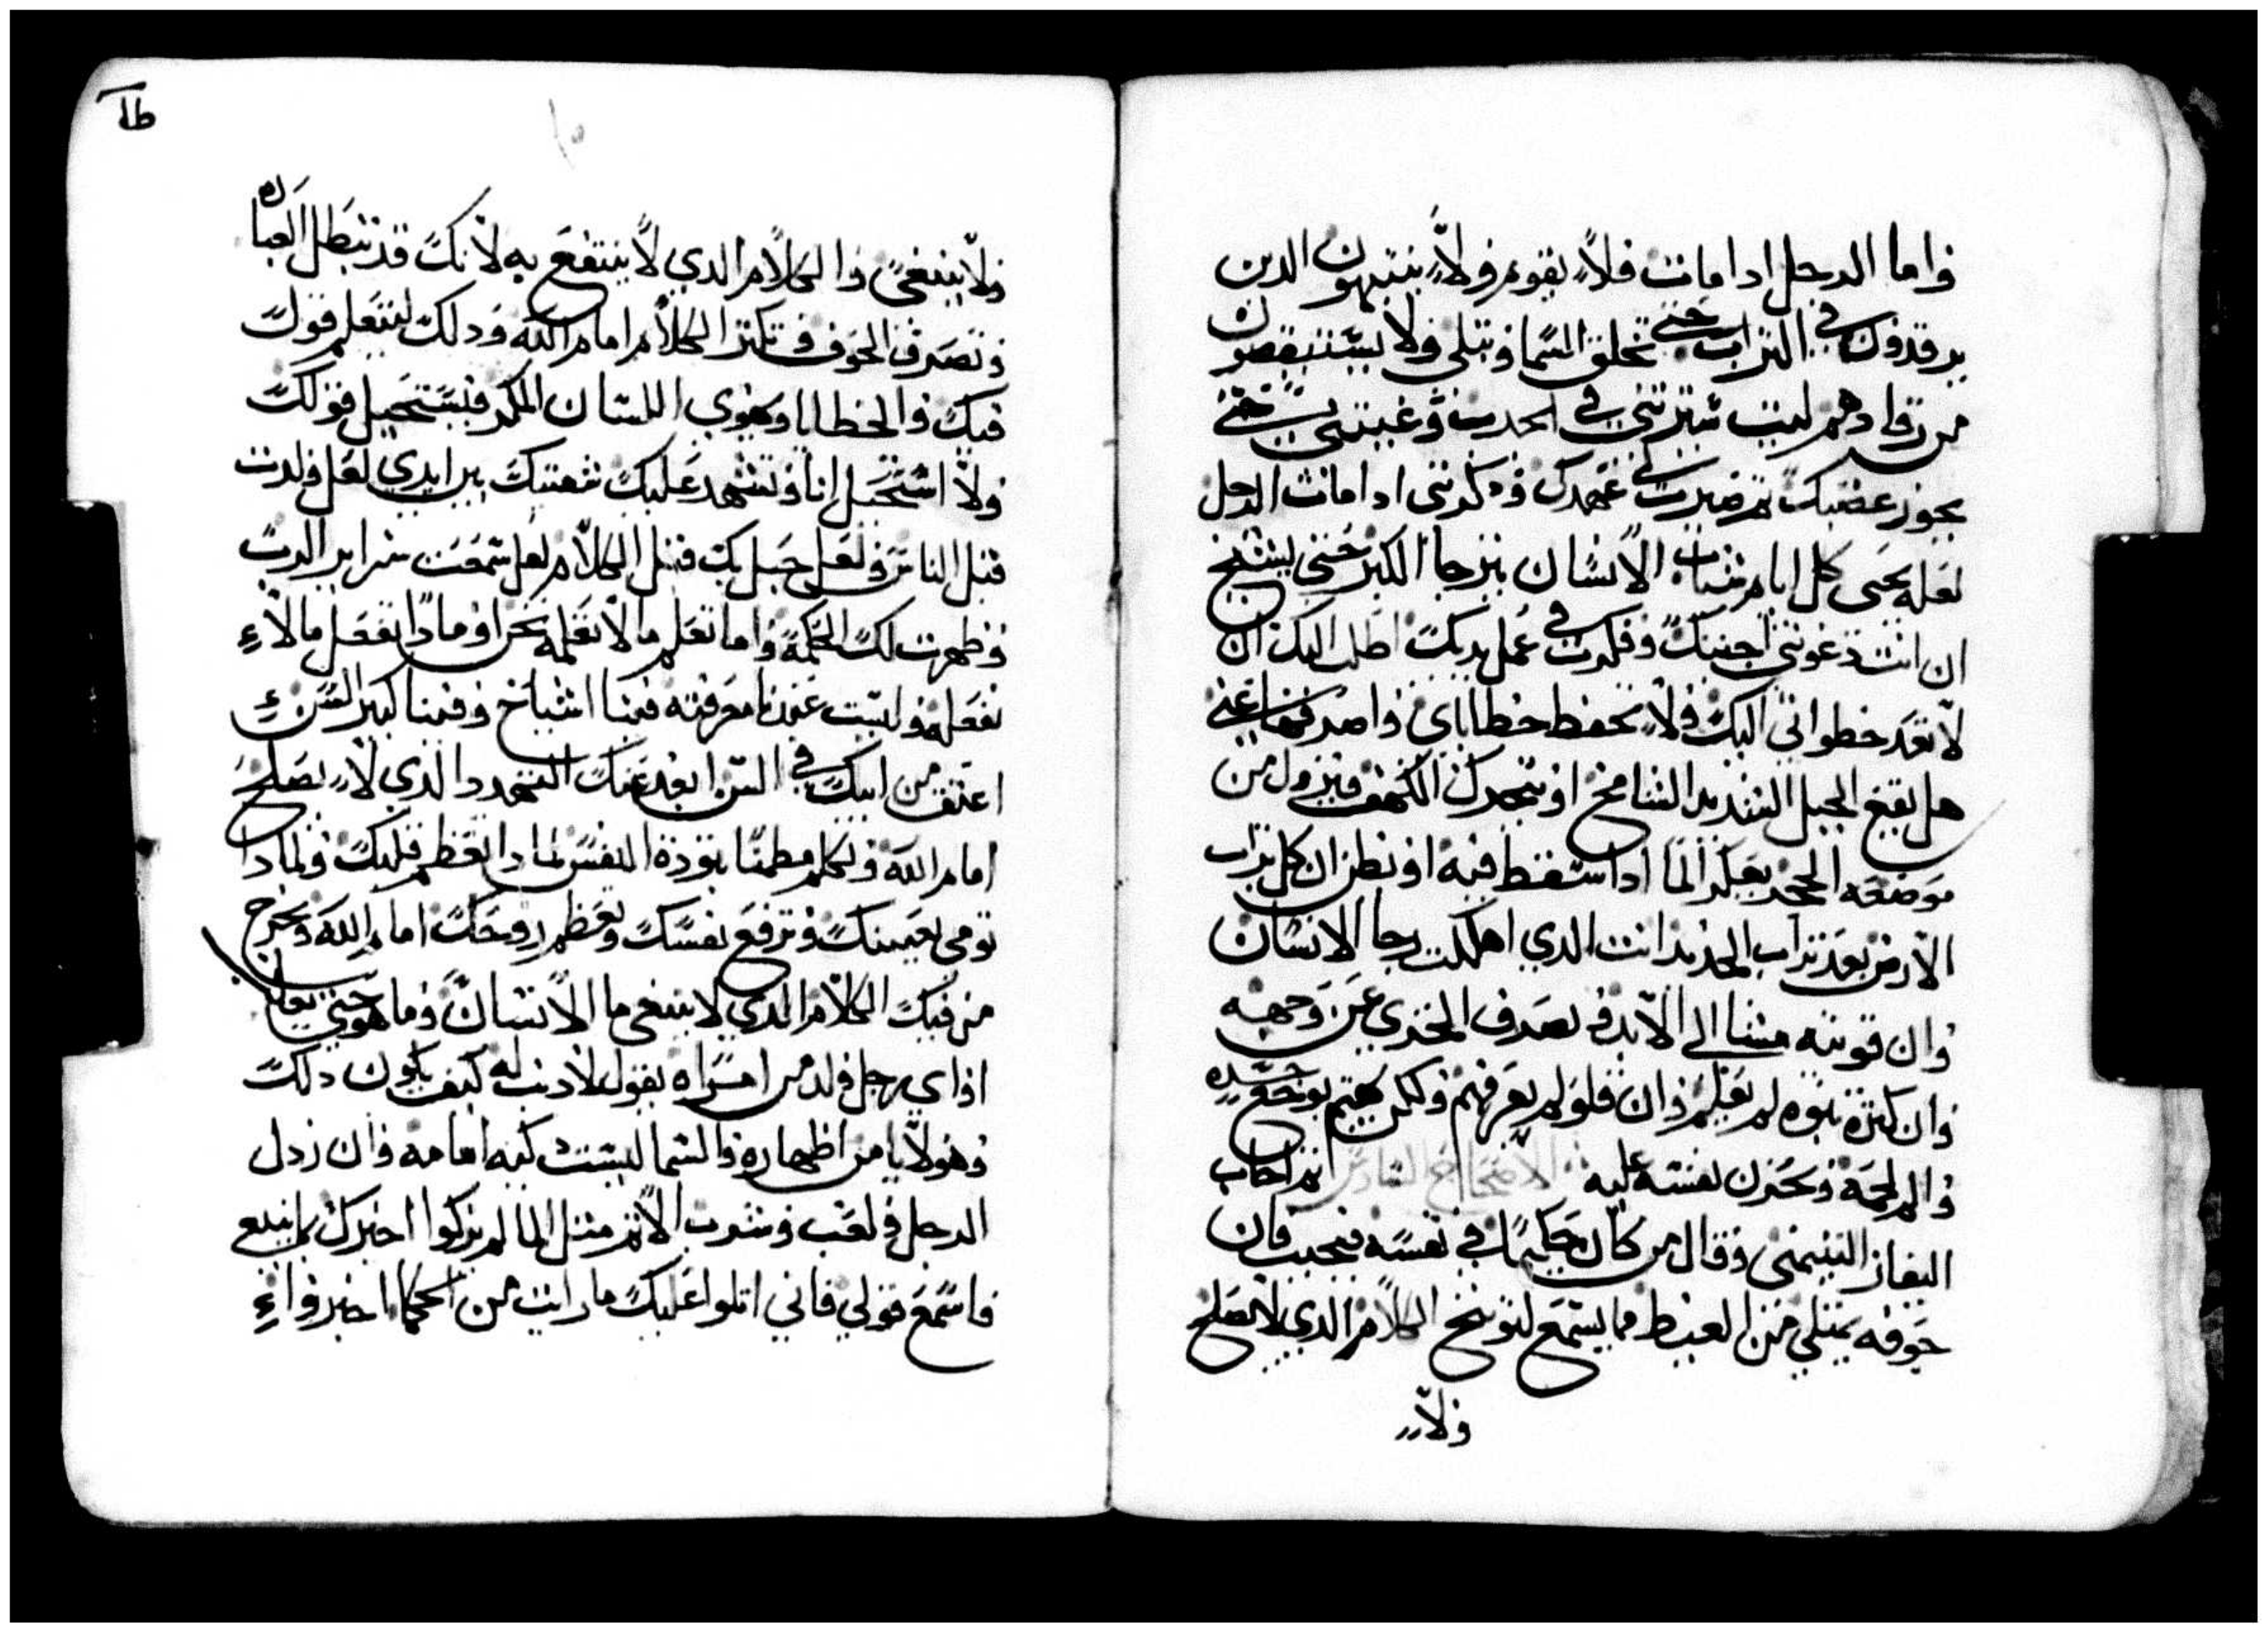 واما الرجل ادا مات فلا يقوم ولا ينتبهون الدين
يرقدون في التراب حتي تخلق السما وتبلي ولا يستنيقضون
من رقادهم ليت سترتني في الجدث وغيبتني حتي
يجوز غضبك ثم صيرت لي عهدك ودكرتني ادا مات الرجل
لعله يحيى كل ايام شباب الانسان يترجا الكبر حتي يشيخ
ان انت دعوتني اجبتك وفكرت في عمل يديك اطلب اليك ان
لا تعد خطواتي اليك ولا تحفظ خطاياي واصرفها عني
هل يقع الجبل الشديد الشامخ او يتحرك الكهف ويزول من
موضعه الحجر يعكر الما ادا سقط فيه او تظن ان كل تراب
الارض يعد تراب الجديد انت الدي اهلكت رجا الانسان
وان قويته مشا الي الابد وتصرف الخزي عن وجهه
وان كثرة بنوه لم يعلم وان قلو لم يعرفهم ولكن يهتم بوجع جسده
والم لحمه وتحزن نفسه عليه الاصحاح السادس ثم اجاب
اليفاز التيمني وقال من كان حكيما في نفسه فيجيب فان
جوفه يمتلي من الغيظ مما يسمع لتوبيخ الكلام الدي لا يصلح
ولا
ولا ينبغي والكلام الدي لا ينتفع به لانك قد تبطل العباده
وتصرف الخوف وتكثر الكلام امام الله ودلك لتتعلم قولك
فيك والخطايا وتهوي اللسان المكر فيستحيل قولك
ولا استحيل انا وتشهد عليك شفتيك بين ايدي لعل ولدت
قبل الناس ولعل حبل بك قبل الكلام لعل سمعت سراير الرب
وظهرت لك الحكمه واما تعلم ما لا نعلمه نحن او مادا تفعل ما لا
نفعله وليست عندنا معرفته فمنا اشياخ وفمنا كبير السن
اعتق من ابيك في السن ابعد عنك التهدد الدي لا يصلح
امام الله وتكلم مطمنا بتودة النفس لمادا تعظم قلبك ولمادا
تومي بعينك وترفع نفسك وتعظم روحك امام الله وتخرج
من فيك الكلام الدي لا ينبغي ما الانسان وما هو حتي يعلم
او اي رجل ولد من امراه يقول لا دنب له كيف يكون دلك
وهو لا يامن اظهاره والسما ليست نقيه امامه وان زدل
الرجل ولعب وشرب الاثم مثل الما لم يزكوا اخبرك بما ينبع
فاسمع قولي فاني اتلوا عليك ما رايت من الحكما اخبروا